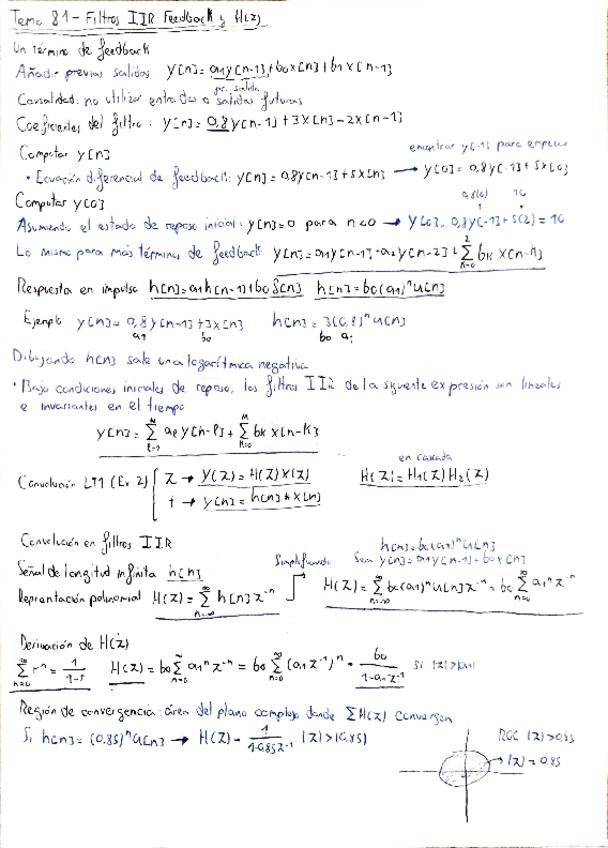 Tema 8.1 - Filtros IIR: Feedback y H(z)
Un término de feedback
Añadir previas salidas y[n] = a1y[n-1] + b0x[n] + b1x[n-1]
pr. salida
Causalidad: no utilizar entradas o salidas futuras
Coeficientes del filtro: y[n] = 0,8y[n-1] + 3x[n] - 2x[n-1]
Computar y[n]
encontrar y[-1] para empezar
• Ecuación diferencial de feedback: y[n] = 0,8y[n-1] + 5x[n] → y[0] = 0,8y[-1] + 5x[0]
Computar y[0]
0,8(0) 10
Asumiendo el estado de reposo inicial: y[n]=0 para n<0 → y[0] = 0,8y[-1] + 5(2) = 10
Lo mismo para más términos de feedback y[n] = a1y[n-1] + a2y[n-2] + Σ bk x[n-k]
2
k=0
Respuesta en impulso h[n] = a1h[n-1] + b0δ[n] h[n] = b0(a1)ⁿu[n]
Ejemplo y[n] = 0,8y[n-1] + 3x[n] h[n] = 3(0,8)ⁿu[n]
a1 b0 b0 a1
Dibujando h[n] sale una logarítmica negativa
• Bajo condiciones iniciales de reposo, los filtros IIR de la siguiente expresión son lineales
e invariantes en el tiempo
y[n] = Σ aℓ y[n-ℓ] + Σ bk x[n-k]
en cascada
Convolución LTI (Ex 2) { z → Y(z) = H(z)X(z) H(z) = H1(z)H2(z)
t → y[n] = h[n] * x[n]
Convolución en filtros IIR
h[n] = b0(a1)ⁿu[n]
Simplificando Sea y[n] = a1y[n-1] + b0x[n]
Señal de longitud infinita h[n]
Reprentación polinomial H(z) = Σ h[n]z⁻ⁿ H(z) = Σ b0(a1)ⁿu[n]z⁻ⁿ = b0 Σ a1ⁿz⁻ⁿ
Derivación de H(z)
Σ rⁿ = 1/(1-r) H(z) = b0 Σ a1ⁿz⁻ⁿ = b0 Σ (a1z⁻¹)ⁿ = b0/(1-a1z⁻¹) si |z|>|a1|
Región de convergencia: área del plano complejo donde ΣH(z) convergen
Si h[n] = (0,85)ⁿu[n] → H(z) = 1/(1-0,85z⁻¹) |z|>|0,85|
ROC |z|>0,85
→ |z| = 0,85